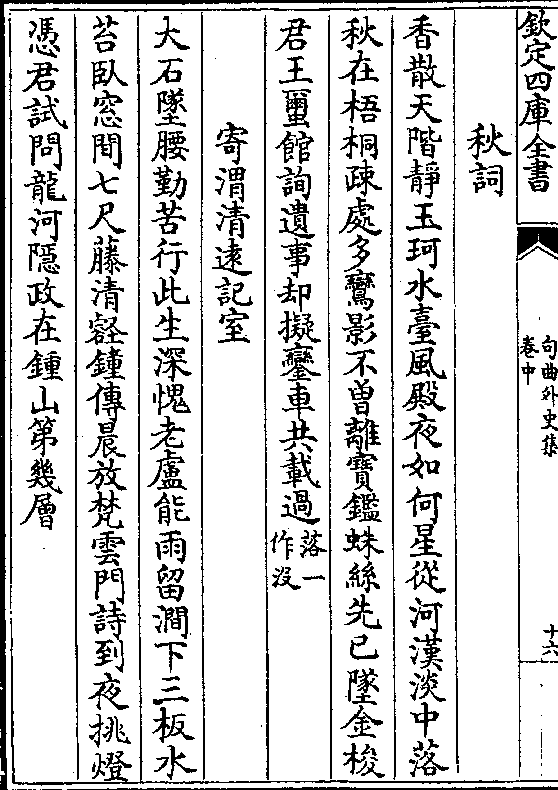 欽定四庫全書
句曲外史集
卷中
十六
秋詞
香散天階靜玉珂水臺風殿夜如何星從河漢淡中落
秋在梧桐疎處多鸞影不曽離寳鑑蛛絲先已墜金梭
君王壐館詢遺事却擬鑾車共載過落一作没
寄渭清逺記室
大石墜腰勤苦行此生深愧老盧能雨留澗下三板水
苔卧窓間七尺藤清壑鐘傳晨放梵雲門詩到夜挑燈
憑君試問龍河隱政在鍾山第幾層